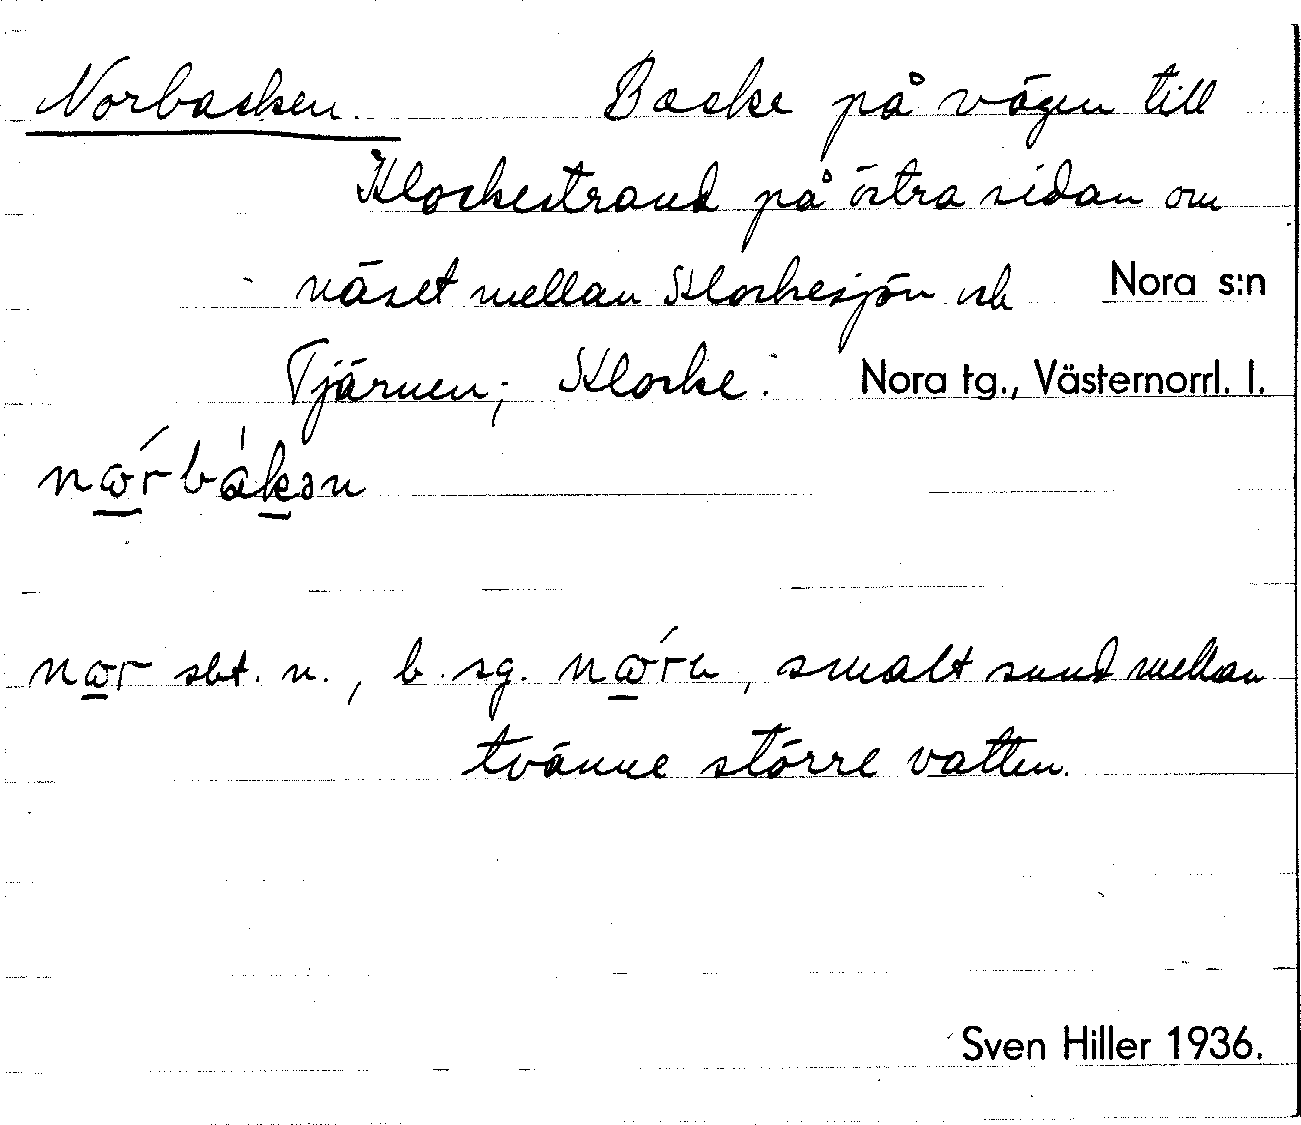 Norbacken. Backe på vägen till
Klockestrand på östra sidan om
näset mellan Klockesjön och Nora s:n
Tjärnen; Klocke. Nora tg., Västernorrl. l.
nɷ́rbákən
nɷr sbt. n., b. sg. nɷ́rə, smalt sund mellan
tvänne större vatten.
Sven Hiller 1936.